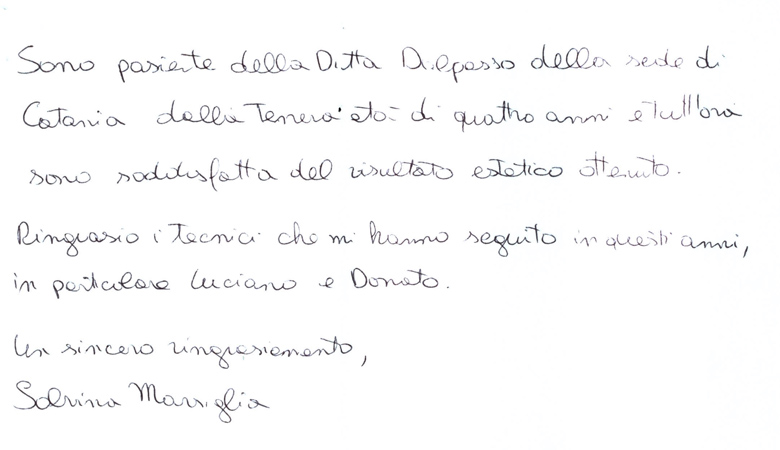 Sono paziente della Ditta Dilpasso della sede di
Catania dalla Tenera età di quattro anni e Tutt'ora
sono soddisfatta del risultato estetico ottenuto.
Ringrazio i Tecnici che mi hanno seguito in questi anni,
in particolare Luciano e Donato.
Un sincero ringraziamento,
Salvina Marsiglia